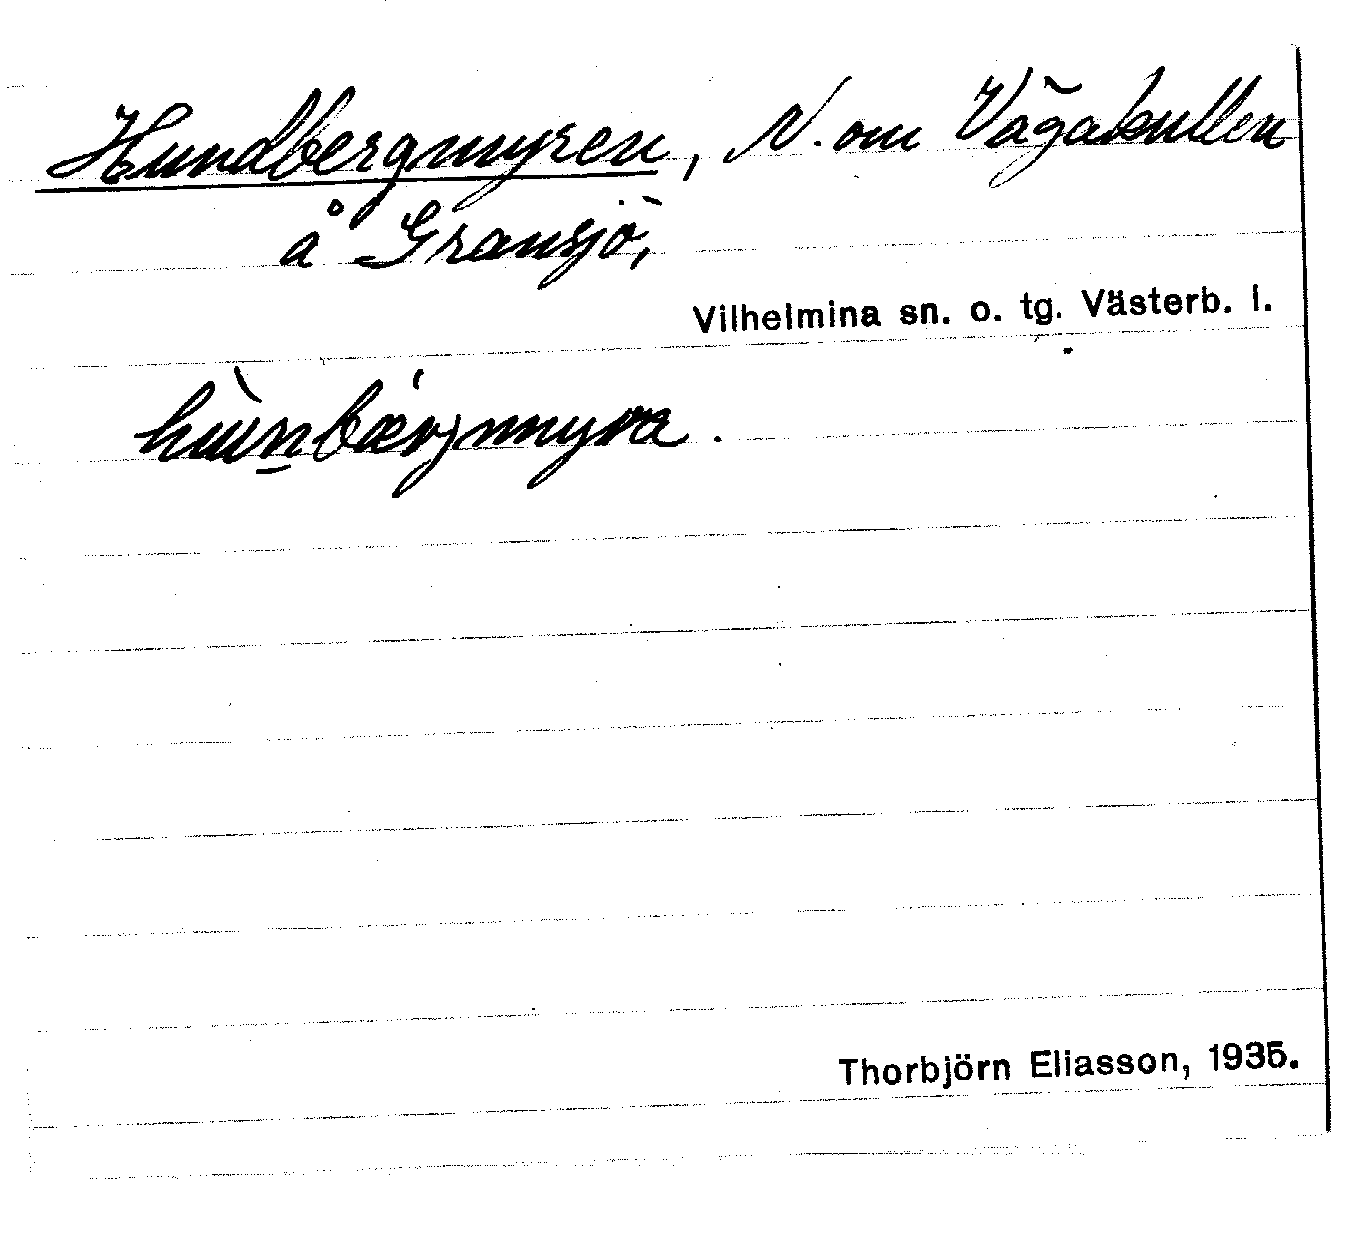 Hundbergmyren, N. om Vågakullen
å Gransjö,
Vilhelmina sn. o. tg. Västerb. l.
Thorbjörn Eliasson, 1935.